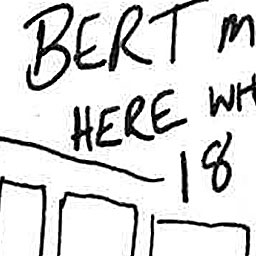 BERT M
HERE WH
18